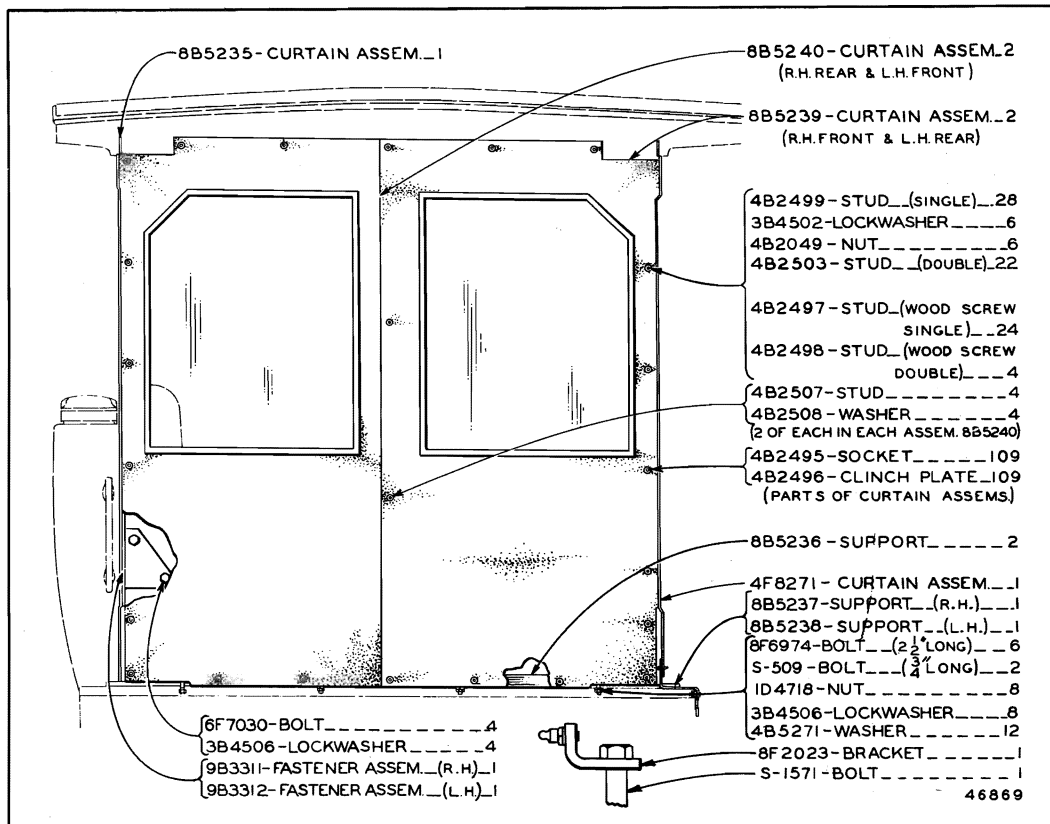 8B5235-CURTAIN ASSEM.__1
8B5240-CURTAIN ASSEM._2
(R.H. REAR & L.H. FRONT)
8B5239-CURTAIN ASSEM._2
(R.H. FRONT & L.H. REAR)
4B2499-STUD__(SINGLE)__28
3B4502-LOCKWASHER____6
4B2049-NUT_________6
4B2503-STUD__(DOUBLE)_22
4B2497-STUD_(WOOD SCREW
SINGLE)__24
4B2498-STUD__(WOOD SCREW
DOUBLE)____4
4B2507-STUD________4
4B2508-WASHER______4
(2 OF EACH IN EACH ASSEM. 8B5240)
4B2495-SOCKET_____109
4B2496-CLINCH PLATE_109
(PARTS OF CURTAIN ASSEMS.)
8B5236-SUPPORT_____2
4F8271-CURTAIN ASSEM.__1
8B5237-SUPPORT__(R.H.)__1
8B5238-SUPPORT__(L.H.)__1
8F6974-BOLT__(2 1/2" LONG)__6
S-509-BOLT__(3/4" LONG)__2
1D4718-NUT________8
3B4506-LOCKWASHER___8
4B5271-WASHER_____12
8F2023-BRACKET_____1
S-1571-BOLT________1
6F7030-BOLT________4
3B4506-LOCKWASHER____4
9B3311-FASTENER ASSEM.__(R.H.)_1
9B3312-FASTENER ASSEM.__(L.H.)_1
46869